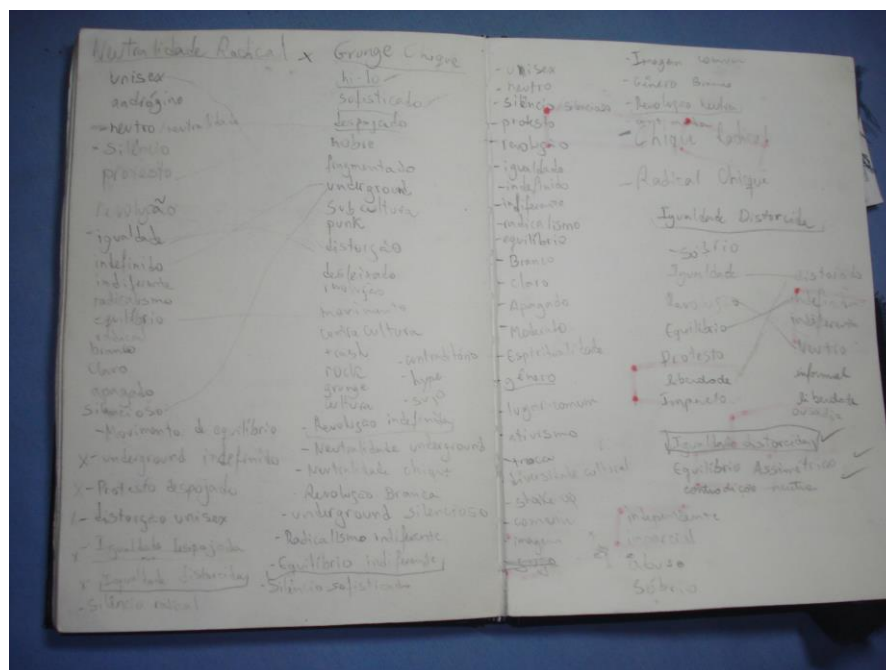 Neutralidade Radical x Grunge Chique
unisex
andrógino
neutro/neutralidade
- Silêncio
protesto
revolução
- igualdade
indefinido
indiferente
radicalismo
equilíbrio
branco
claro
apagado
silencioso
- Movimento de equilíbrio
x - underground indefinido
x - Protesto despojado
x - distorção unisex
x - Igualdade despojada
x Igualdade distorcida
- Silêncio radical
hi-lo
sofisticado
despojado
nobre
fragmentado
underground
subcultura
punk
distorção
desleixado
movimento
contra cultura
trash
rock
grunge
cultura
- contraditório
- hype
- sujo
- Revolução indefinida
- Neutralidade underground
- Neutralidade chique
- Revolução Branca
- underground silencioso
- Radicalismo indiferente
- Equilíbrio indiferente
- Silêncio sofisticado
- unisex
- neutro
- silêncio/silencioso
- protesto
- revolução
- igualdade
- indefinido
- indiferente
- radicalismo
- equilíbrio
- Branco
- claro
- Apagado
- Espiritualidade
- gênero
- lugar-comum
- ativismo
- troca
diversidade cultural
- shake up
- comum
- imagem
- Imagem comum
- Gênero Branco
- Revolução neutra
- Chique Radical
- Radical Chique
Igualdade Distorcida
- Sóbrio
Igualdade
Revolução
Equilíbrio
Protesto
liberdade
Impacto
distorcido
indefinido
indiferente
Neutro
informal
liberdade
ousadia
Igualdade distorcida
Equilíbrio Assimétrico
contradição neutra
imparcial
abuso
Sóbrio